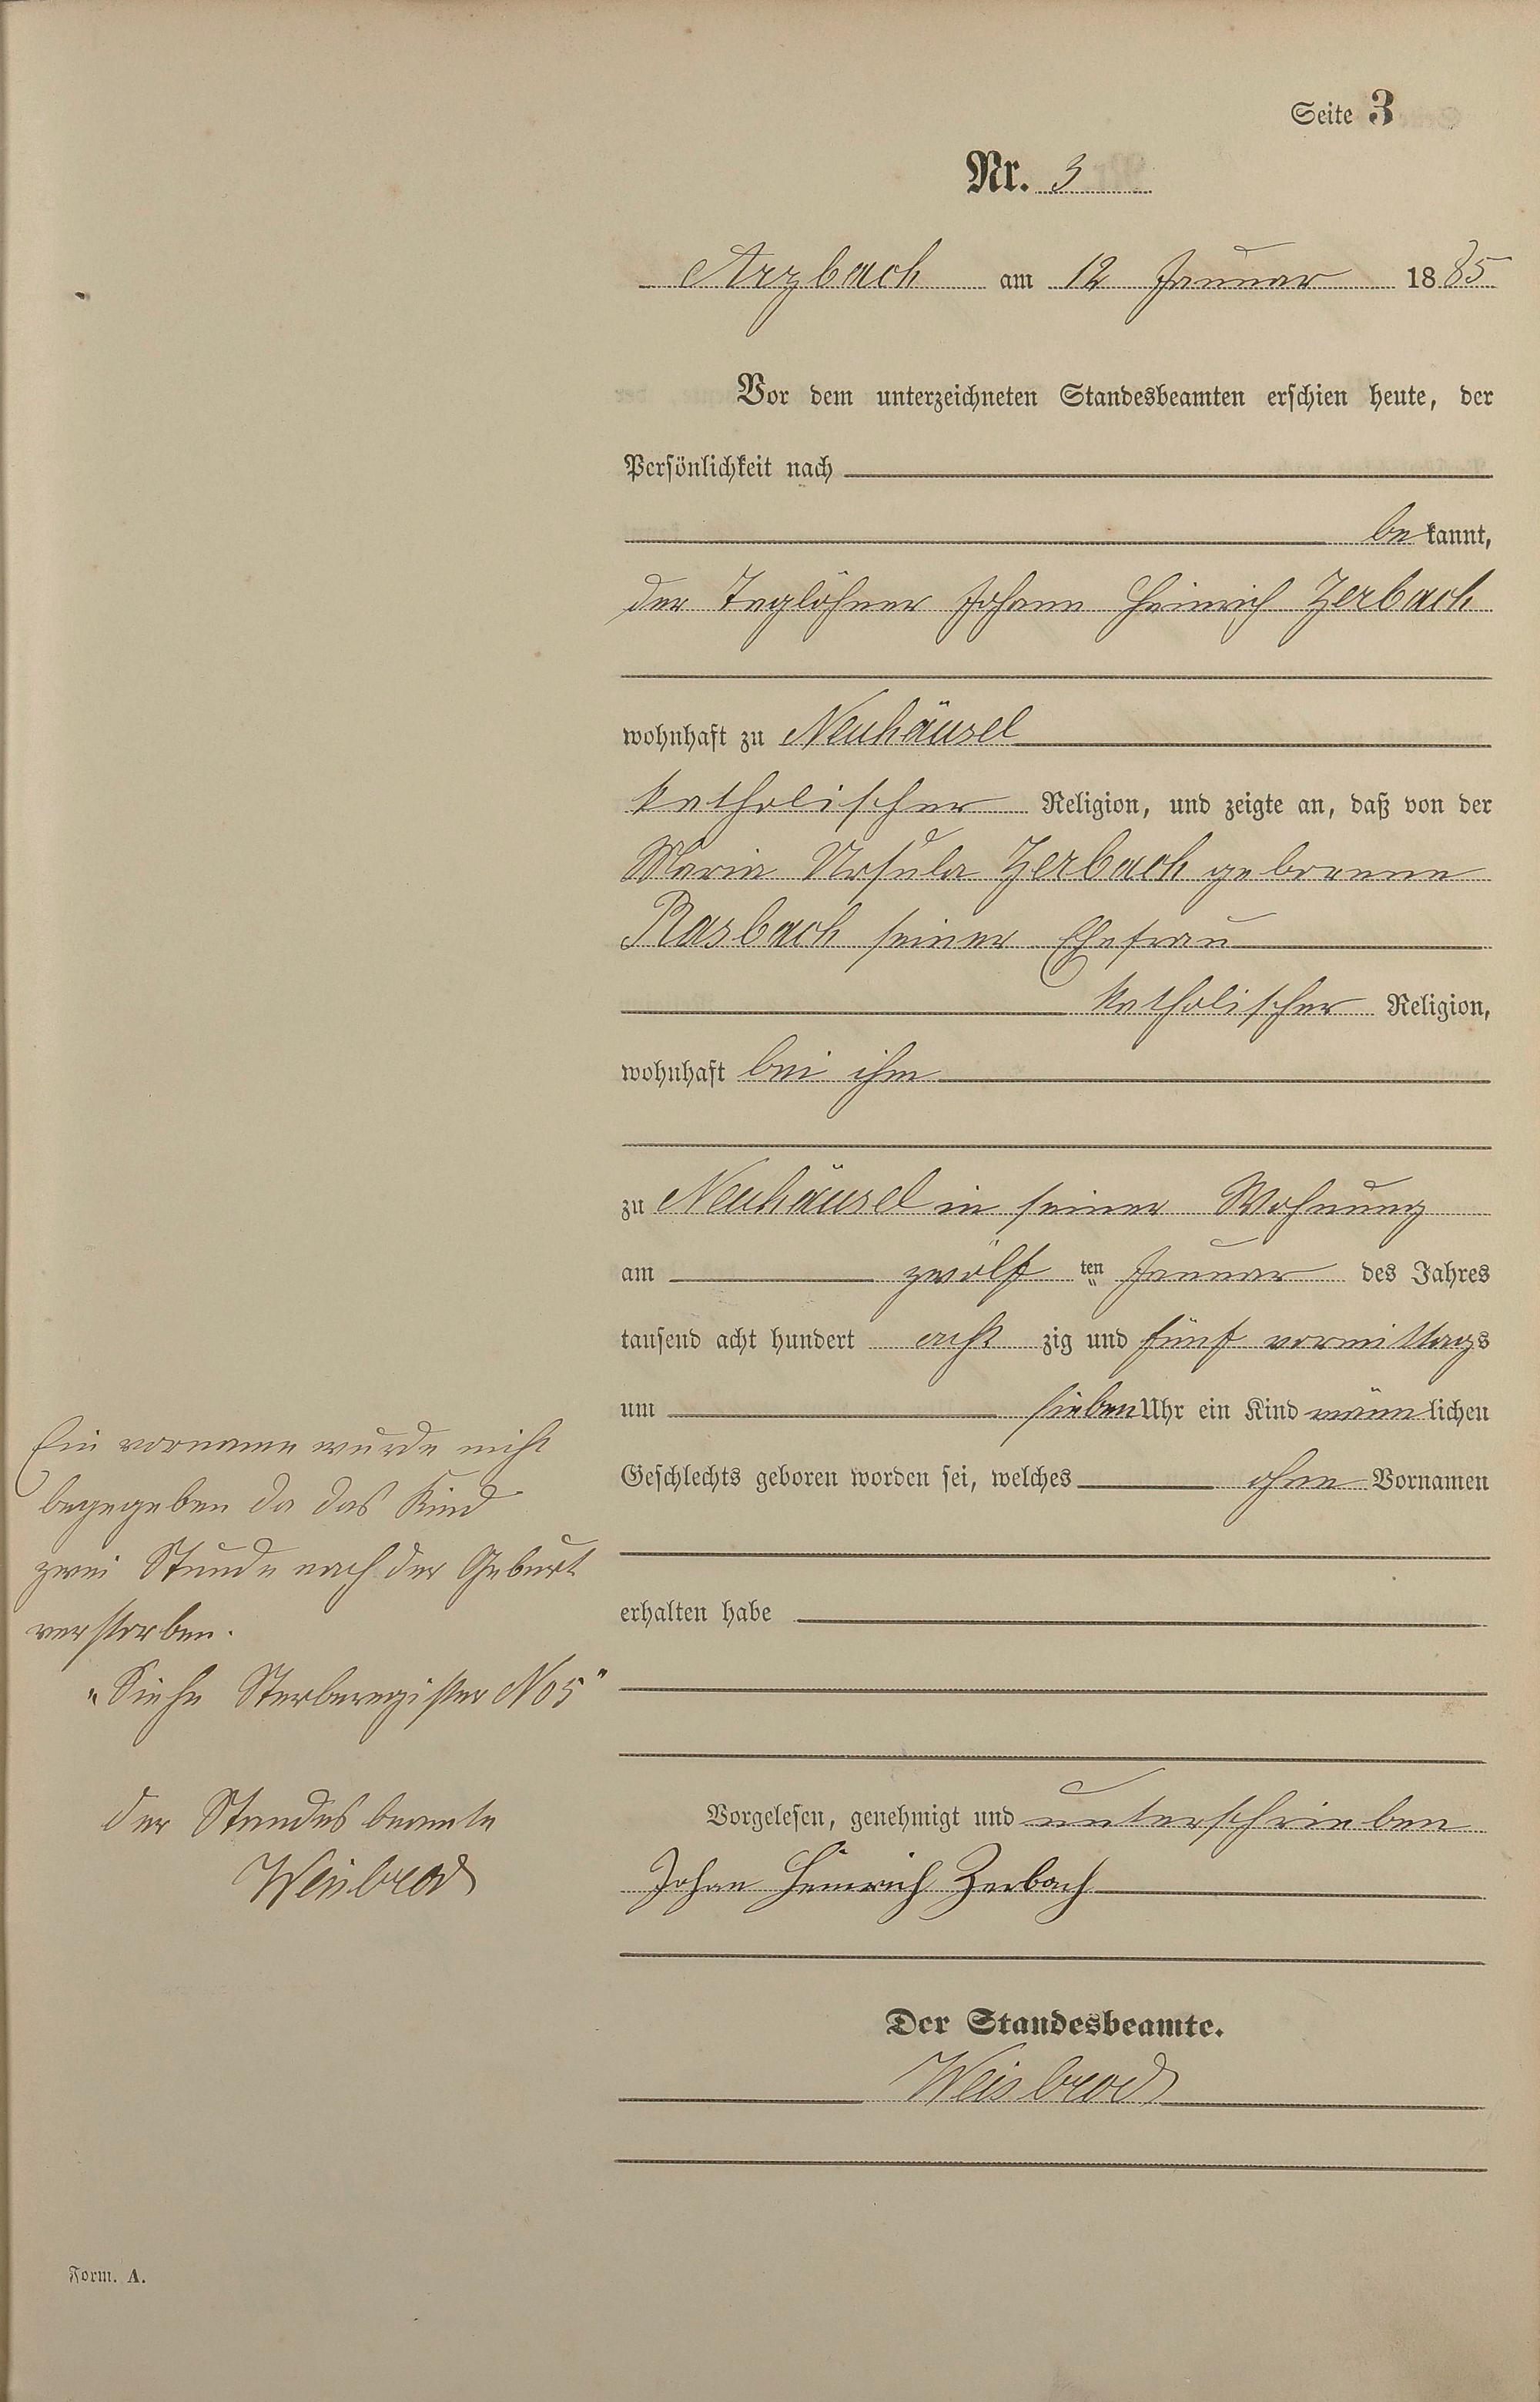 Seite 3
Nr. 3
Arzbach am 12 Januar 1885
Vor dem unterzeichneten Standesbeamten erschien heute, der
Persönlichkeit nach
bekannt,
der Taglöhner Johann Heinrich Zerbach
wohnhaft zu Neuhäusel
katholischer Religion, und zeigte an, daß von der
Maria Ursula Zerbach geborenne
Rasbach seiner Ehefrau
katholischer Religion,
wohnhaft bei ihm
zu Neuhäusel in seiner Wohnung
am zwölf ten Januar des Jahres
tausend acht hundert acht zig und fünf vormittags
um sieben Uhr ein Kind männlichen
Geschlechts geboren worden sei, welches ohne Vornamen
erhalten habe
Vorgelesen, genehmigt und unterschrieben
Johan Heinrich Zerbach
Der Standesbeamte.
Weisbrod
Ein vorname wurde nicht
begegeben da das Kind
zwei Stunde nach der Geburt
verstorben.
"Siehe Sterberegister No 5"
der Standesbeamte
Weisbrod
Form. A.